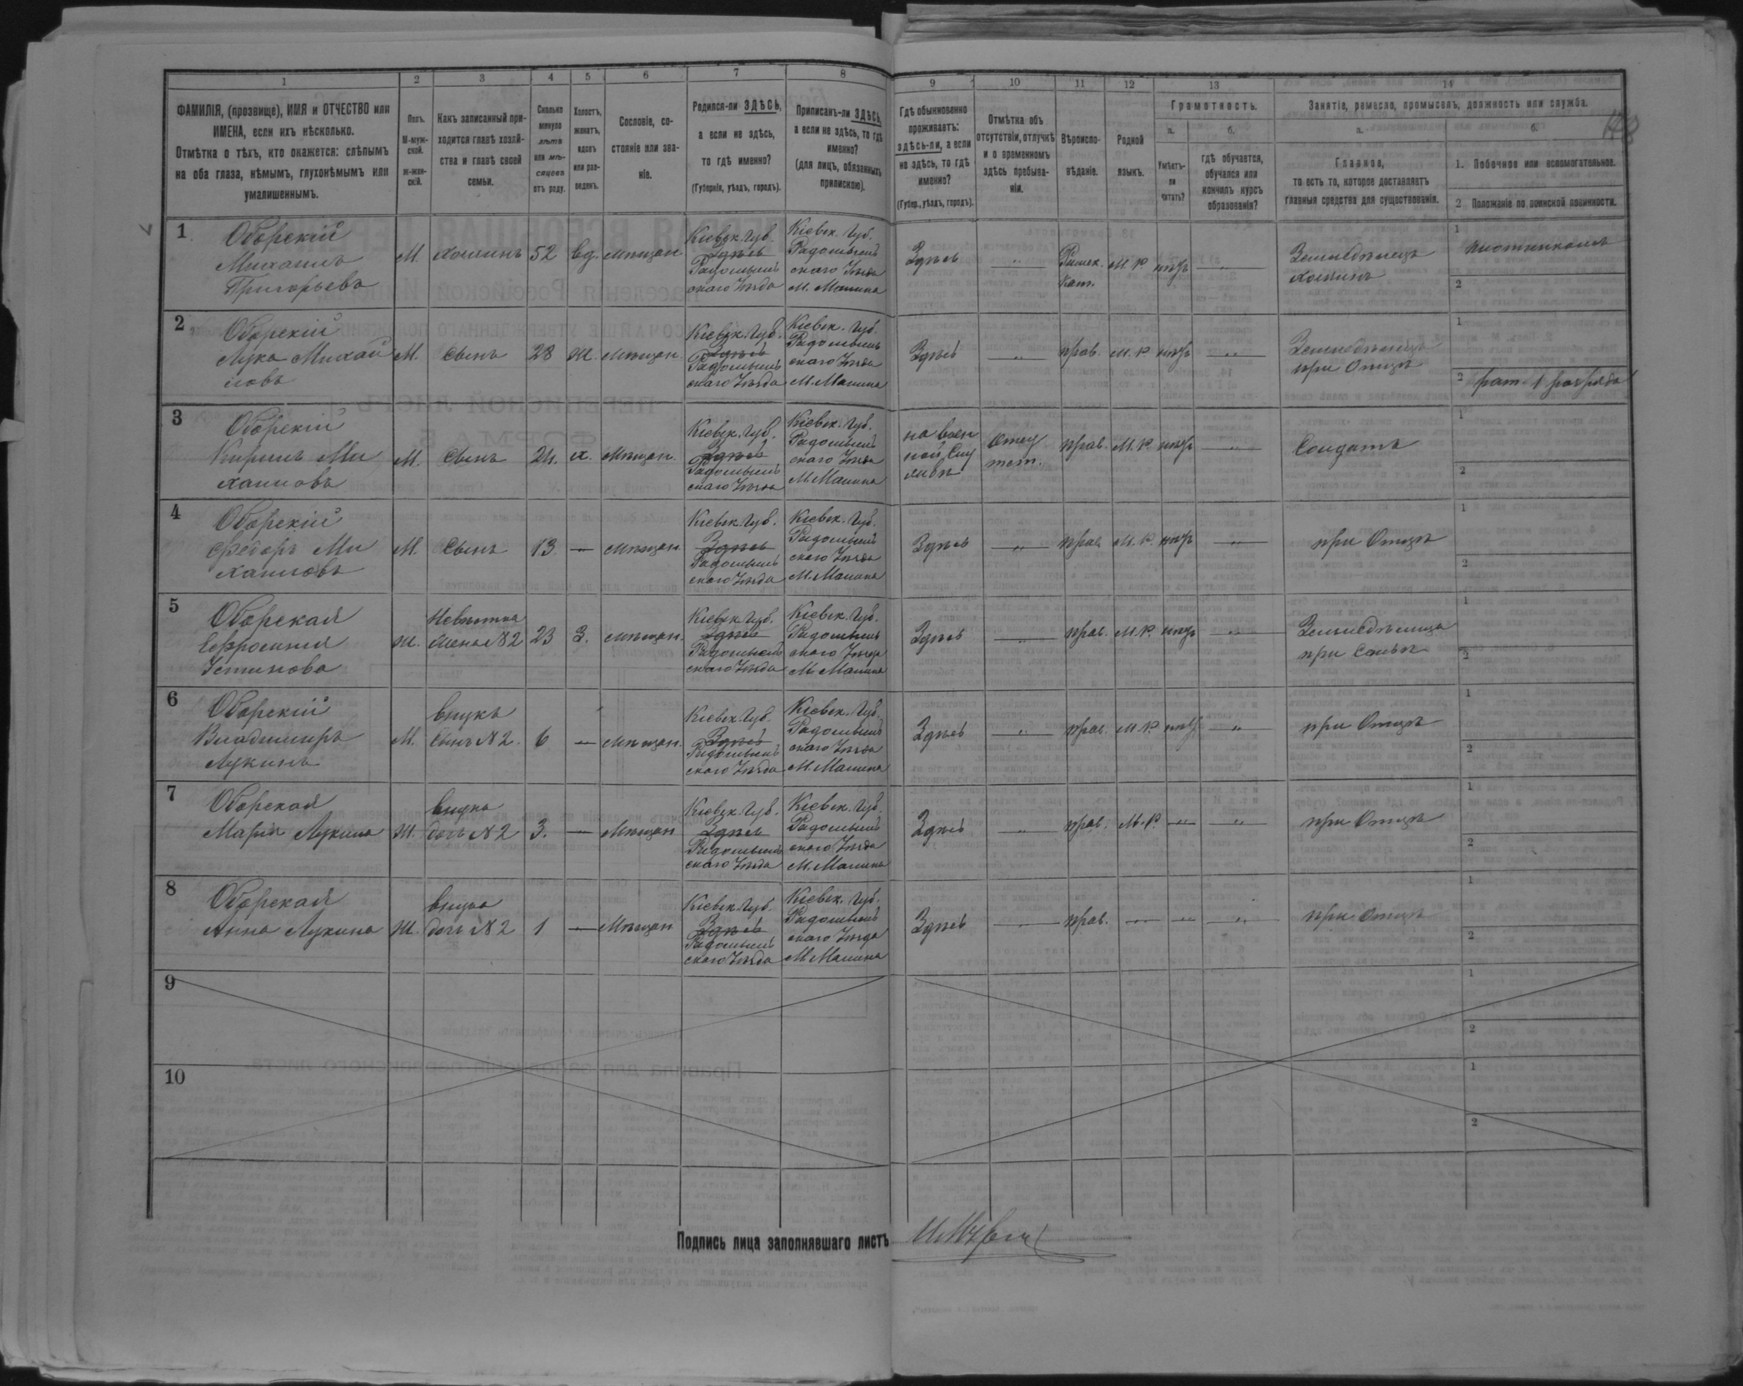 1 2 3 4 5 6 7 8 9 10 11 12 13 14
ФАМИЛІЯ, (прозвище), ИМЯ и ОТЧЕСТВО или
ИМЕНА, если ихъ нѣсколько.
Отмѣтка о тѣхъ, кто окажется: слѣпымъ
на оба глаза, нѣмымъ, глухонѣмымъ или
умалишеннымъ.
Полъ.
М-муж-
ской.
Ж-жен-
скій.
Какъ записанный при-
ходится главѣ хозяй-
ства и главѣ своей
семьи.
Сколько
минуло
лѣтъ
или мѣ-
сяцевъ
отъ роду.
Холостъ,
женатъ,
вдовъ
или раз-
веденъ.
Сословіе, со-
стояніе или зва-
ніе.
Родился-ли ЗДѢСЬ,
а если не здѣсь,
то гдѣ именно?
(Губернія, уѣздъ, городъ).
Приписанъ-ли ЗДѢСЬ,
а если не здѣсь, то гдѣ
именно?
(для лицъ, обязанныхъ
припискою).
Гдѣ обыкновенно
проживаетъ:
здѣсь-ли, а если
не здѣсь, то гдѣ
именно?
(Губер., уѣздъ, городъ).
Отмѣтка объ
отсутствіи, отлучкѣ
и о временномъ
здѣсь пребыва-
ніи.
Вѣроиспо-
вѣданіе.
Родной
языкъ.
Грамотность.
а.
Умѣетъ-
ли
читать?
б.
гдѣ обучается,
обучался или
кончилъ курсъ
образованія?
Занятіе, ремесло, промыселъ, должность или служба.
а.
Главное,
то есть то, которое доставляетъ
главныя средства для существованія.
б.
1. Побочное или вспомогательное.
2 Положеніе по воинской повинности.
1
Оборскій
Михаилъ
Григорьевъ
М
хозяинъ
52
вд.
мѣщан
Кіевск. Губ.
Здѣсь
Радомысль
скаго Уѣзда
Кіевск. Губ.
Радомысль
скаго Уѣзда
М. Малина
Здѣсь
"
Римск.
Кат.
М Р
нѣтъ
"
Земледѣлецъ
хозяинъ
1
плотникомъ
2
2
Оборскій
Лука Михай
ловъ
М.
Сынъ
28
ж.
Мѣщан
Кіевск. Губ.
Здѣсь
Радомысль
скаго Уѣзда
Кіевск. Губ.
Радомысль
скаго Уѣзда
М. Малина
Здѣсь
"
прав.
М. Р
нѣтъ
"
Земледѣлецъ
при Отцѣ
1
2 рат. 1 разряда
3
Оборскій
Кирилъ Ми
хаиловъ
М.
Сынъ
24.
х.
Мѣщан.
Кіевск. Губ.
Здѣсь
Радомысль
скаго Уѣзда
Кіевск. Губ.
Радомысль
скаго Уѣзда
М. Малина
на воен
ной Слу
жбѣ
Отсу
тст.
прав.
М. Р
нѣтъ
"
Солдатъ
1
2
4
Оборскій
Федоръ Ми
хаиловъ
М.
Сынъ
13
—
мѣщан
Кіевск. Губ.
Здѣсь
Радомысль
скаго Уѣзда
Кіевск. Губ.
Радомысль
скаго Уѣзда
М. Малина
Здѣсь
"
прав
М. Р
нѣтъ
"
при Отцѣ
1
2
5
Оборская
Ефросинія
Устинова
Ж.
Невѣстка
Жена №2
23
З.
мѣщан.
Кіевск. Губ.
Здѣсь
Радомысль
скаго Уѣзда
Кіевск. Губ.
Радомысль
скаго Уѣзда
М. Малина
Здѣсь
"
прав.
М. Р.
нѣтъ
"
Земледѣлица
при Семьѣ
1
2
6
Оборскій
Владимиръ
Лукинъ
М.
внукъ
сынъ №2.
6
—
Мѣщан.
Кіевск. Губ.
Здѣсь
Радомысль
скаго Уѣзда
Кіевск. Губ.
Радомысль
скаго Уѣзда
М. Малина
Здѣсь
"
прав.
М. Р
нѣтъ
"
при Отцѣ
1
2
7
Оборская
Марія Лукина
Ж.
внука
дочь №2
3.
—
Мѣщан
Кіевск. Губ.
Здѣсь
Радомысль
скаго Уѣзда
Кіевск. Губ.
Радомысль
скаго Уѣзда
М. Малина
Здѣсь
"
прав.
М. Р.
"
"
при Отцѣ
1
2
8
Оборская
Анна Лукина
Ж.
внука
дочь №2
1
—
Мѣщан
Кіевск. Губ.
Здѣсь
Радомысль
скаго Уѣзда
Кіевск. Губ.
Радомысль
скаго Уѣзда
М. Малина
Здѣсь
"
прав.
"
"
"
при Отцѣ
1
2
9
1
2
10
1
2
Подпись лица заполнявшаго листъ